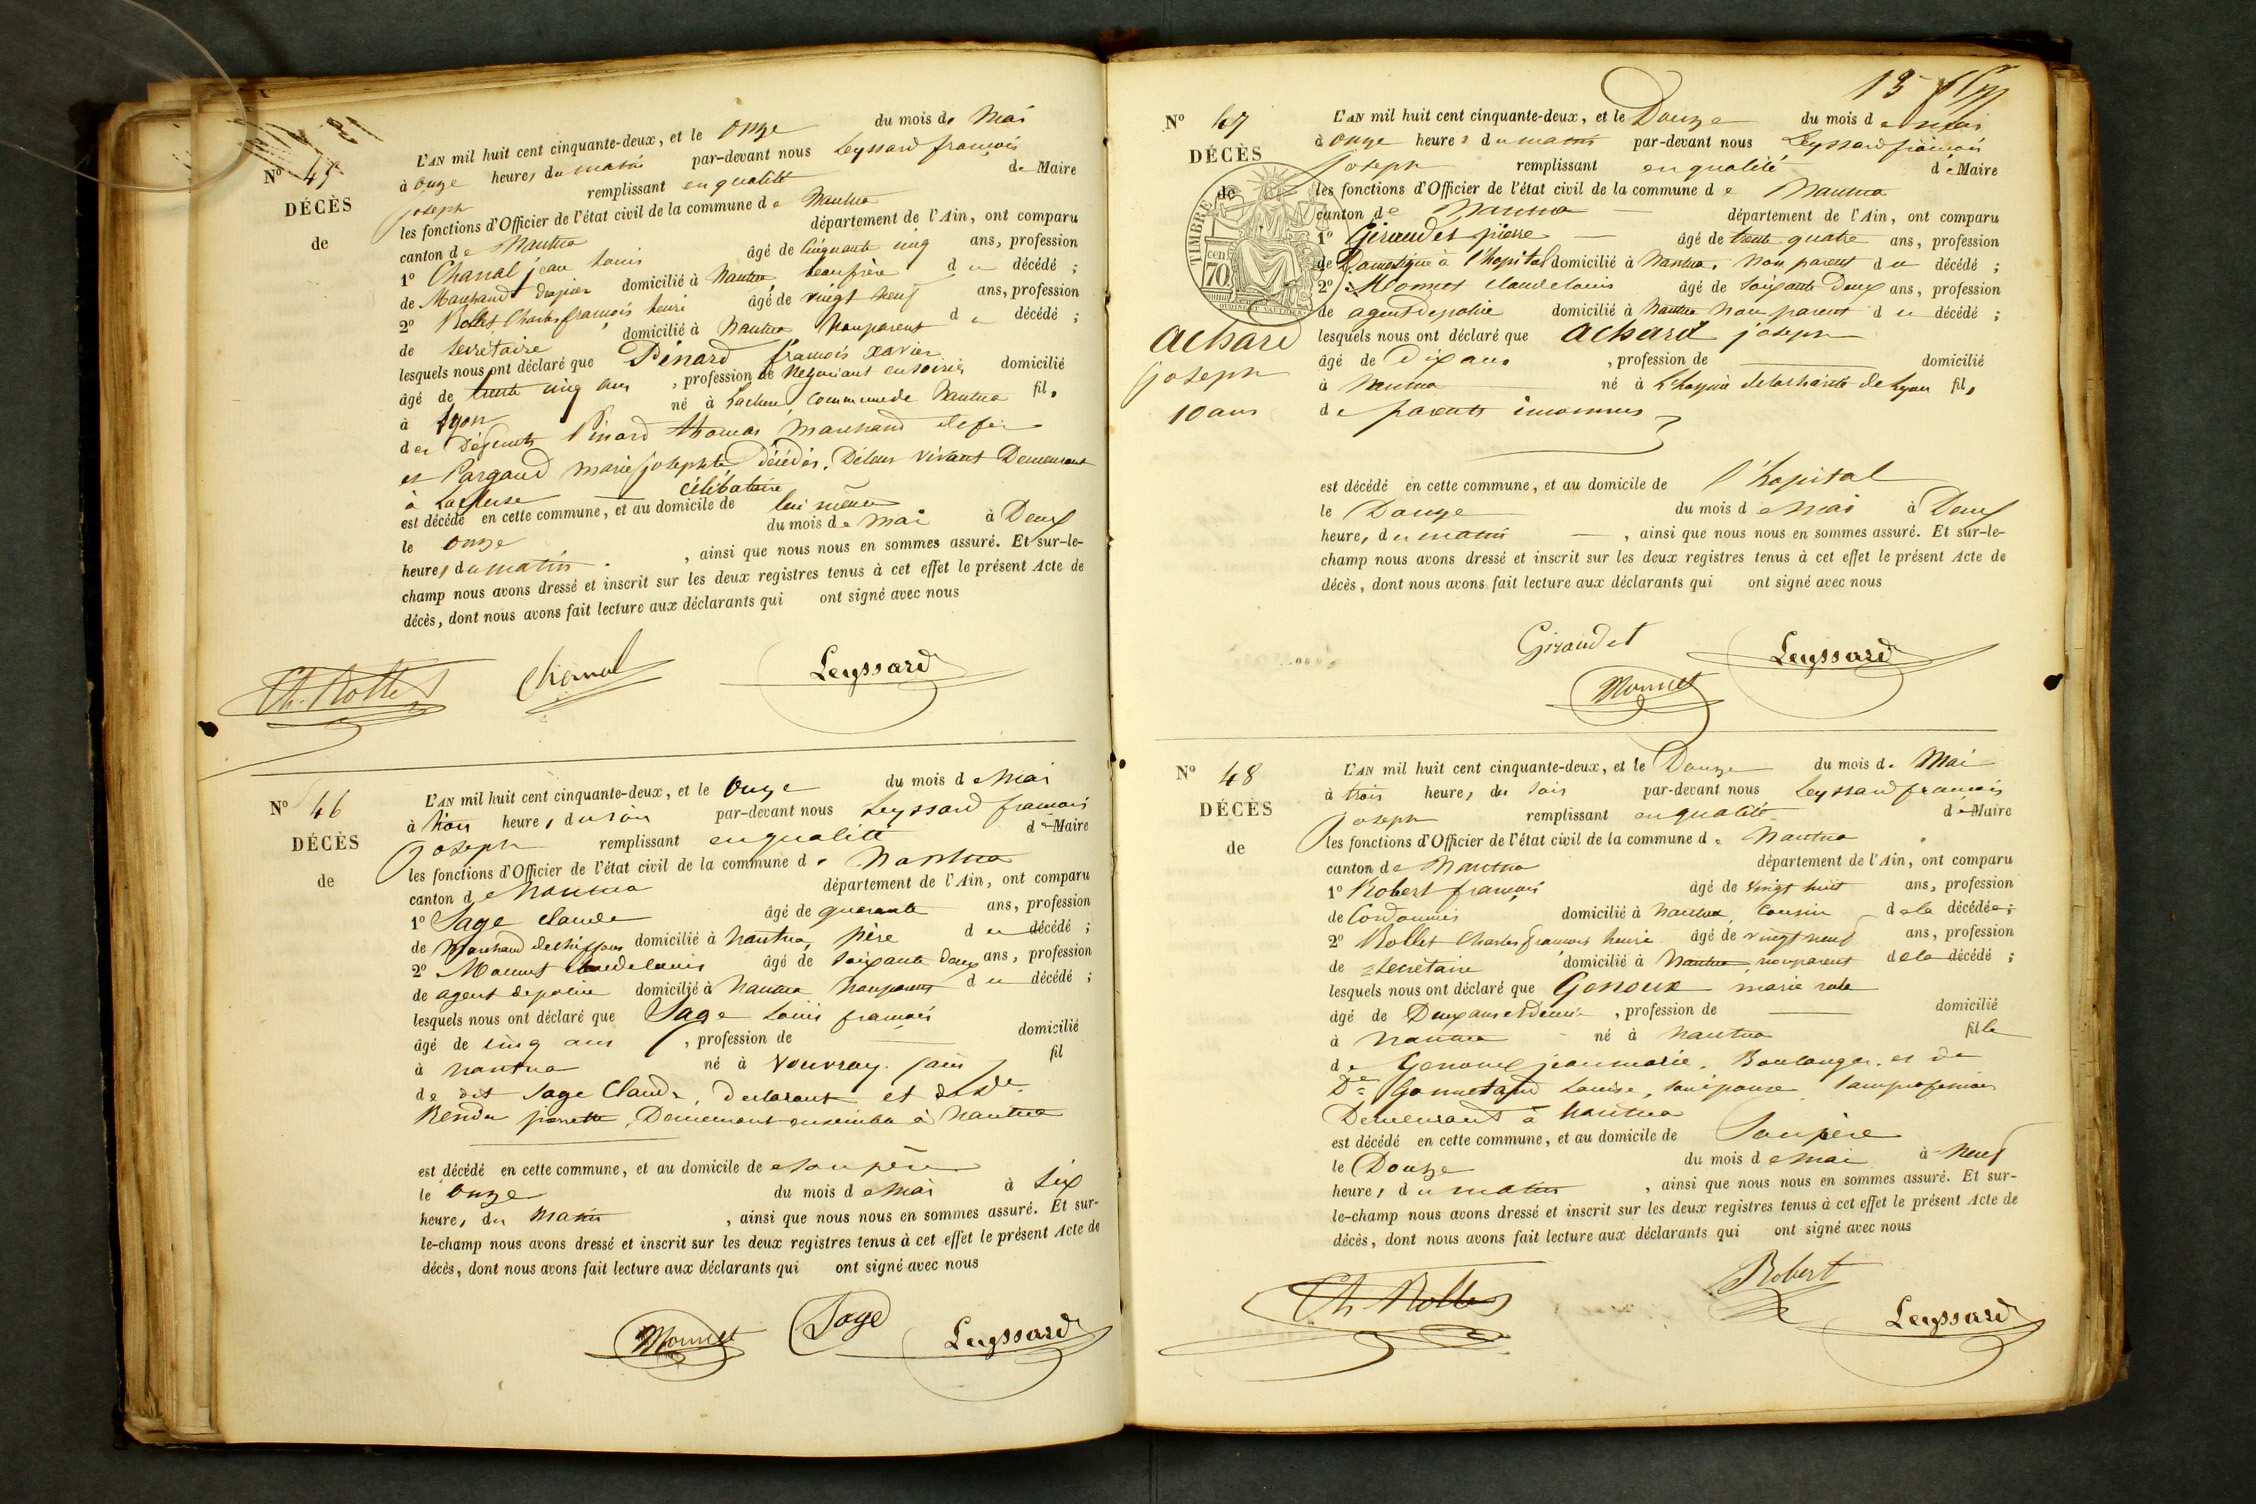 N° 45
DÉCÈS
de
L'AN mil huit cent cinquante-deux, et le onze du mois de Mai
à onze heures du matin par-devant nous Leyssard françois
joseph remplissant en qualité de Maire
les fonctions d'Officier de l'état civil de la commune de Nantua
canton de Nantua département de l'Ain, ont comparu
1° Charral jean Louis âgé de Cinquante cinq ans, profession
de Marchand drapier domicilié à Nantua, beaufrère du décédé ;
2° Rollet Charles françois henri âgé de vingt neuf ans, profession
de secrétaire domicilié à Nantua Non parent du décédé ;
lesquels nous ont déclaré que Pinard françois xavier
âgé de trente cinq ans , profession de Négociant en soieries domicilié
à Lyon né à Lacluse, commune de Nantua fils
des Défunts Pinard thomas Marchand de fer
et Pargaud marie josephte décédés. De leur vivant Demeurant
à Lacluse célibataire
est décédé en cette commune, et au domicile de lui même
le onze du mois de Mai à Deux
heures du matin , ainsi que nous nous en sommes assuré. Et sur-le-
champ nous avons dressé et inscrit sur les deux registres tenus à cet effet le présent Acte de
décès, dont nous avons fait lecture aux déclarants qui ont signé avec nous
Ch. Rollet Charral Leyssard
N° 46
DÉCÈS
de
L'AN mil huit cent cinquante-deux, et le Onze du mois de Mai
à trois heures du soir par-devant nous Leyssard françois
joseph remplissant en qualité de Maire
les fonctions d'Officier de l'état civil de la commune de Nantua
canton de Nantua département de l'Ain, ont comparu
1° Sage Claude âgé de quarante ans, profession
de Marchand de chiffons domicilié à Nantua, père du décédé ;
2° Monnet Claude Louis âgé de soixante deux ans, profession
de agent de police domicilié à Nantua Non parent du décédé ;
lesquels nous ont déclaré que Sage Louis françois
âgé de cinq ans , profession de domicilié
à Nantua né à Vouvray (ain) fil
de dit Sage Claude, declarant et de Dde
Rendu pierrette, Demeurant ensemble à Nantua
est décédé en cette commune, et au domicile de son père
le Onze du mois de Mai à Six
heures du Matin , ainsi que nous nous en sommes assuré. Et sur-
le-champ nous avons dressé et inscrit sur les deux registres tenus à cet effet le présent Acte de
décès, dont nous avons fait lecture aux déclarants qui ont signé avec nous
Monnet Sage Leyssard
13
N° 47
DÉCÈS
de
TIMBRE
70 cen
achard
joseph
10 ans
L'AN mil huit cent cinquante-deux, et le Douze du mois de Mai
à onze heures du matin par-devant nous Leyssard françois
joseph remplissant en qualité de Maire
les fonctions d'Officier de l'état civil de la commune de Nantua
canton de Nantua département de l'Ain, ont comparu
1° Giraudet pierre âgé de trente quatre ans, profession
de Domestique à l'hopital domicilié à Nantua, Non parent du décédé ;
2° Monnet Claude Louis âgé de soixante Deux ans, profession
de agent de police domicilié à Nantua Non parent du décédé ;
lesquels nous ont déclaré que achard joseph
âgé de Dix ans , profession de domicilié
à Nantua né à L'hospice de la charité de Lyon fils
de parents inconnus
est décédé en cette commune, et au domicile de l'hopital
le Douze du mois de Mai à Deux
heures du matin , ainsi que nous nous en sommes assuré. Et sur-le-
champ nous avons dressé et inscrit sur les deux registres tenus à cet effet le présent Acte de
décès, dont nous avons fait lecture aux déclarants qui ont signé avec nous
Giraudet Leyssard
Monnet
N° 48
DÉCÈS
de
L'AN mil huit cent cinquante-deux, et le Douze du mois de Mai
à trois heures du soir par-devant nous Leyssard françois
joseph remplissant en qualité de Maire
les fonctions d'Officier de l'état civil de la commune de Nantua
canton de Nantua département de l'Ain, ont comparu
1° Robert françois âgé de vingt huit ans, profession
de Cordonnier domicilié à Nantua, cousin de la décédée ;
2° Rollet Charles françois henri âgé de vingt neuf ans, profession
de secrétaire domicilié à Nantua, non parent de la décédé ;
lesquels nous ont déclaré que Genoux marie rose
âgé de Deux ans et demi , profession de domicilié
à Nantua né à Nantua fille
de Genoux jean marie, Boulanger, et de
De Louise, son épouse, sans profession
Demeurant à Nantua
est décédé en cette commune, et au domicile de Son père
le Douze du mois de Mai à Neuf
heures du matin , ainsi que nous nous en sommes assuré. Et sur-
le-champ nous avons dressé et inscrit sur les deux registres tenus à cet effet le présent Acte de
décès, dont nous avons fait lecture aux déclarants qui ont signé avec nous
Ch. Rollet Robert Leyssard